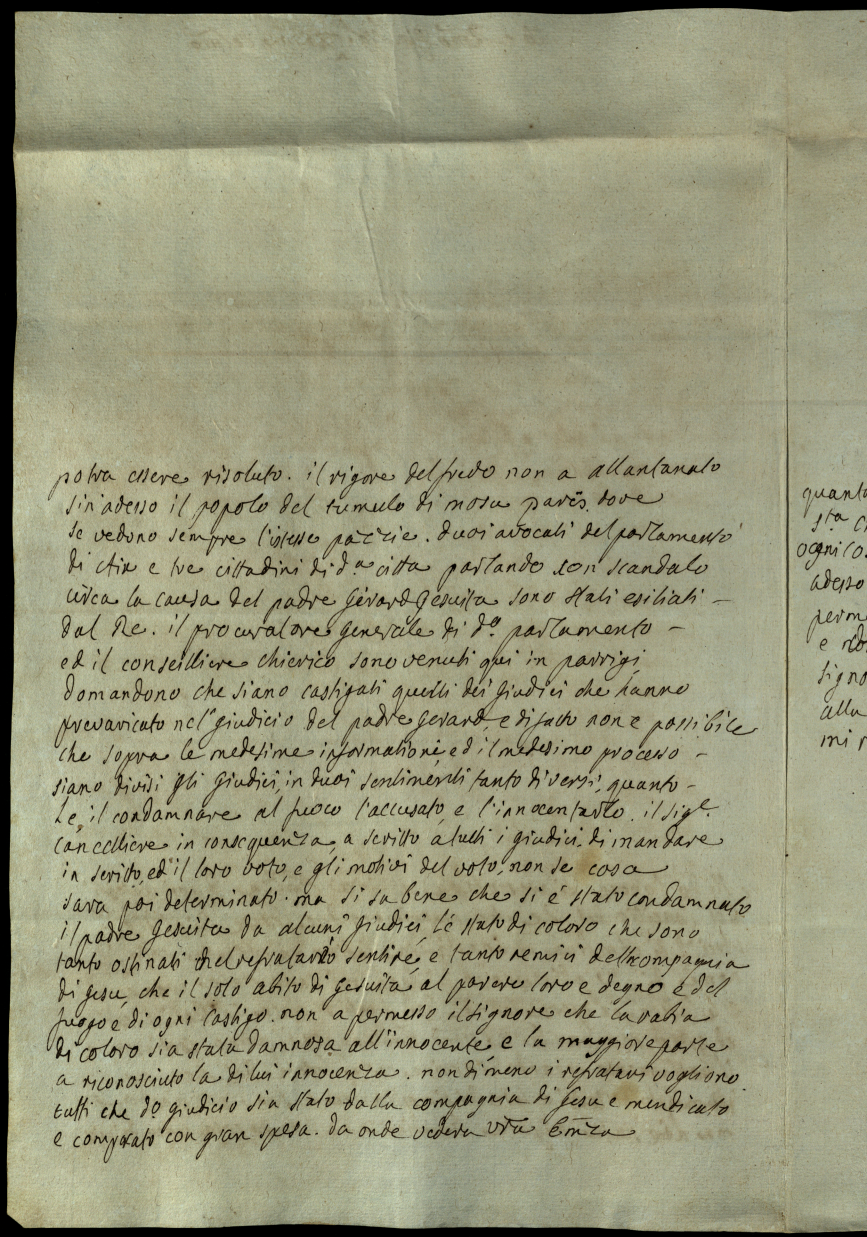 potra essere risoluto. il rigore del fredo non a allantanato
sin'adesso il popolo del tumulo di mosu paris. dove
se vedono sempre l'istesse pazzie. duoi avocati del parlamento
di Aix e tre cittadini di d.a citta parlando con scandalo
circa la causa del padre Gérard Gesuita sono stati esiliati –
dal Re. il procuratore generale di d.o parlamento –
ed il conseilliere chierico sono venuti qui in parrigi
domandono che siano castigati quelli dei giudici che hanno
prevaricato nel giudicio del padre Gerard, e di facto non e possibile
che sopra le medesime informationi, ed il medesimo processo –
siano divisi gli giudici, in duoi sentimenti tanto diversi, quanto –
l'e, il condamnare al fuoco l'accusato, e l'innocentarlo. il sig.e
cancelliere in consequenza, a scritto a tutti i giudici, di mandare
in scritto, ed il loro voto, e gli motivi del voto, non se cosa
sara poi determinato. ma si sa bene che si é stato condamnato
il padre Gesuita da alcuni giudici l'é stato di coloro che sono
tanto ostinati nel refratario sentire, e tanto nemici della compagnia
di Gesu, che il solo abito di Gesuita, al parere loro e degno é del
fuogo e di ogni castigo. non a permesso il signore che la rabia
di coloro sia stata damnosa all'innocente, e la maggiore parte
a riconosciuto la di lui innocenza. nondimeno i refratari vogliono
tutti che d.o giudicio sia stato dalla compagnia di Gesu e mendicato
e comprato con gran spesa. da onde vedera vra Emza
quant
sta c
ogni cos
adesso
perm
e
signo
alla
mi r